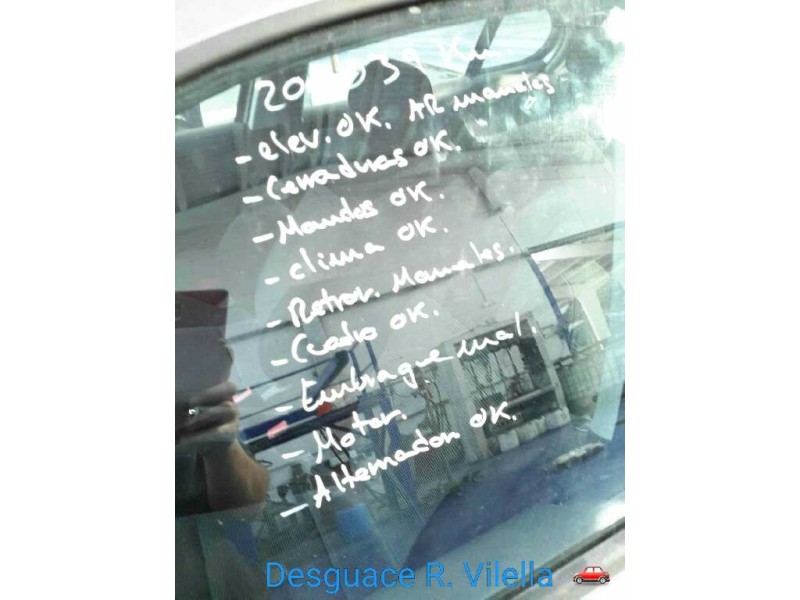 Km.
- elev. OK. AR manuales
- Cerraduras OK.
- Mandos OK.
- clima OK.
- Retrov. Manuales.
- Cuadro OK.
- Embrague mal.
- Motor.
- Alternador OK.
Desguace R. Vilella